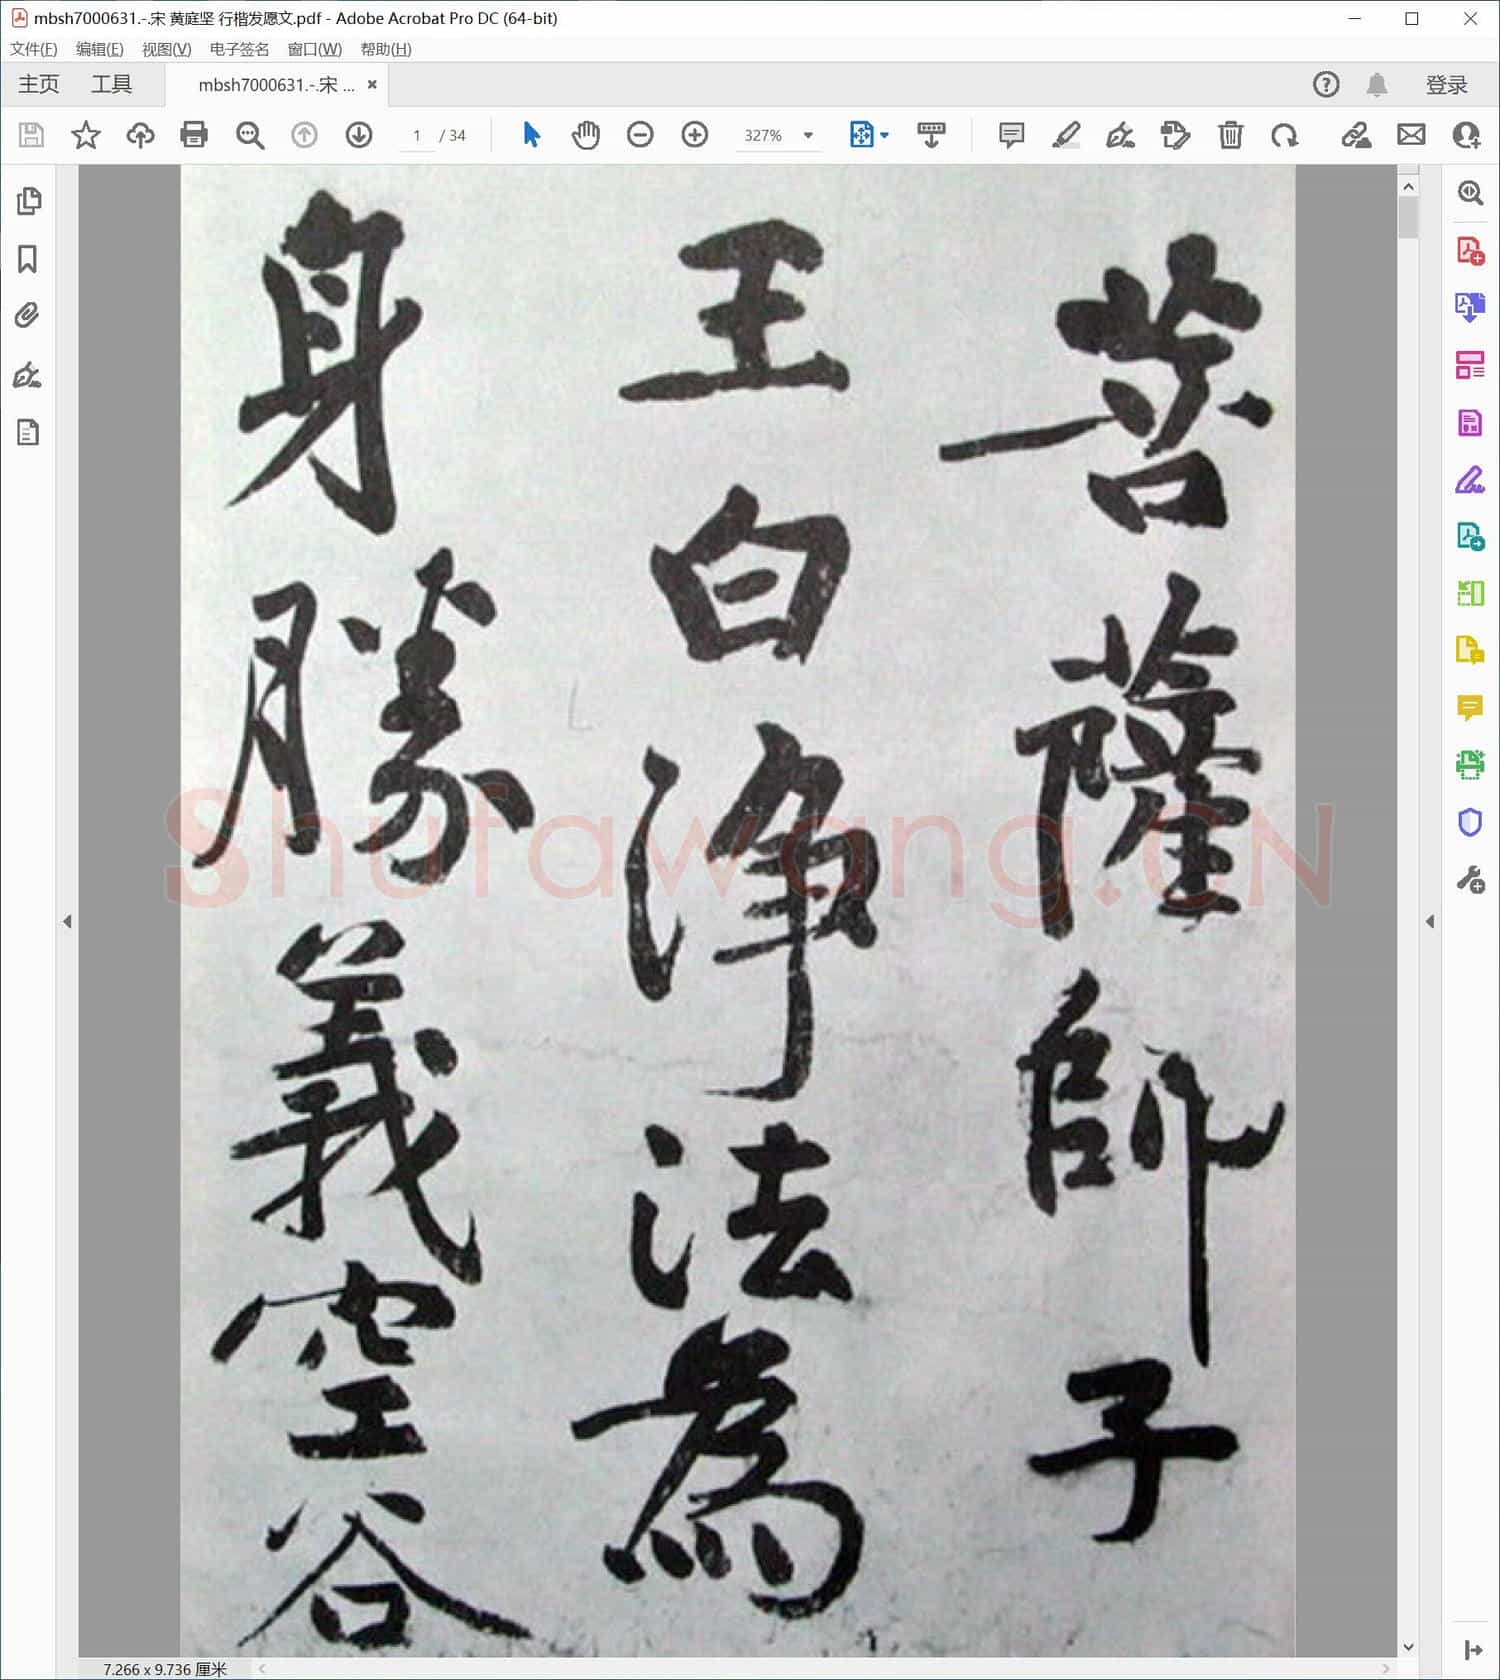 mbsh7000631.-.宋 黄庭坚 行楷发愿文.pdf - Adobe Acrobat Pro DC (64-bit)
文件(F) 编辑(E) 视图(V) 电子签名 窗口(W) 帮助(H)
主页 工具 mbsh7000631.-.宋 ... 登录
1 / 34 327%
菩薩師子
王白淨法為
身勝義空谷
Shufawang.CN
7.266 x 9.736 厘米